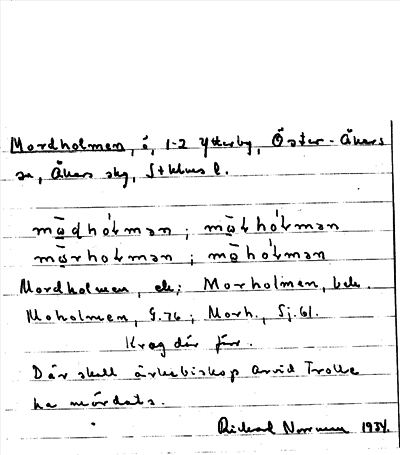 Mordholmen, ö, 1-2 Ytterby, Öster-Åkers
sn, Åkers skg, Sthlms l.
mōdhólmən ; mōlhólmən
mōrholmən ; mōhólmən
Mordholmen, ek; Morholmen, bek.
Moholmen, G.76; Morh., Sj.61.
Krog där förr.
Där skall ärkebiskop Arvid Trolle
ha mördats.
Rickard Norrman 1934.